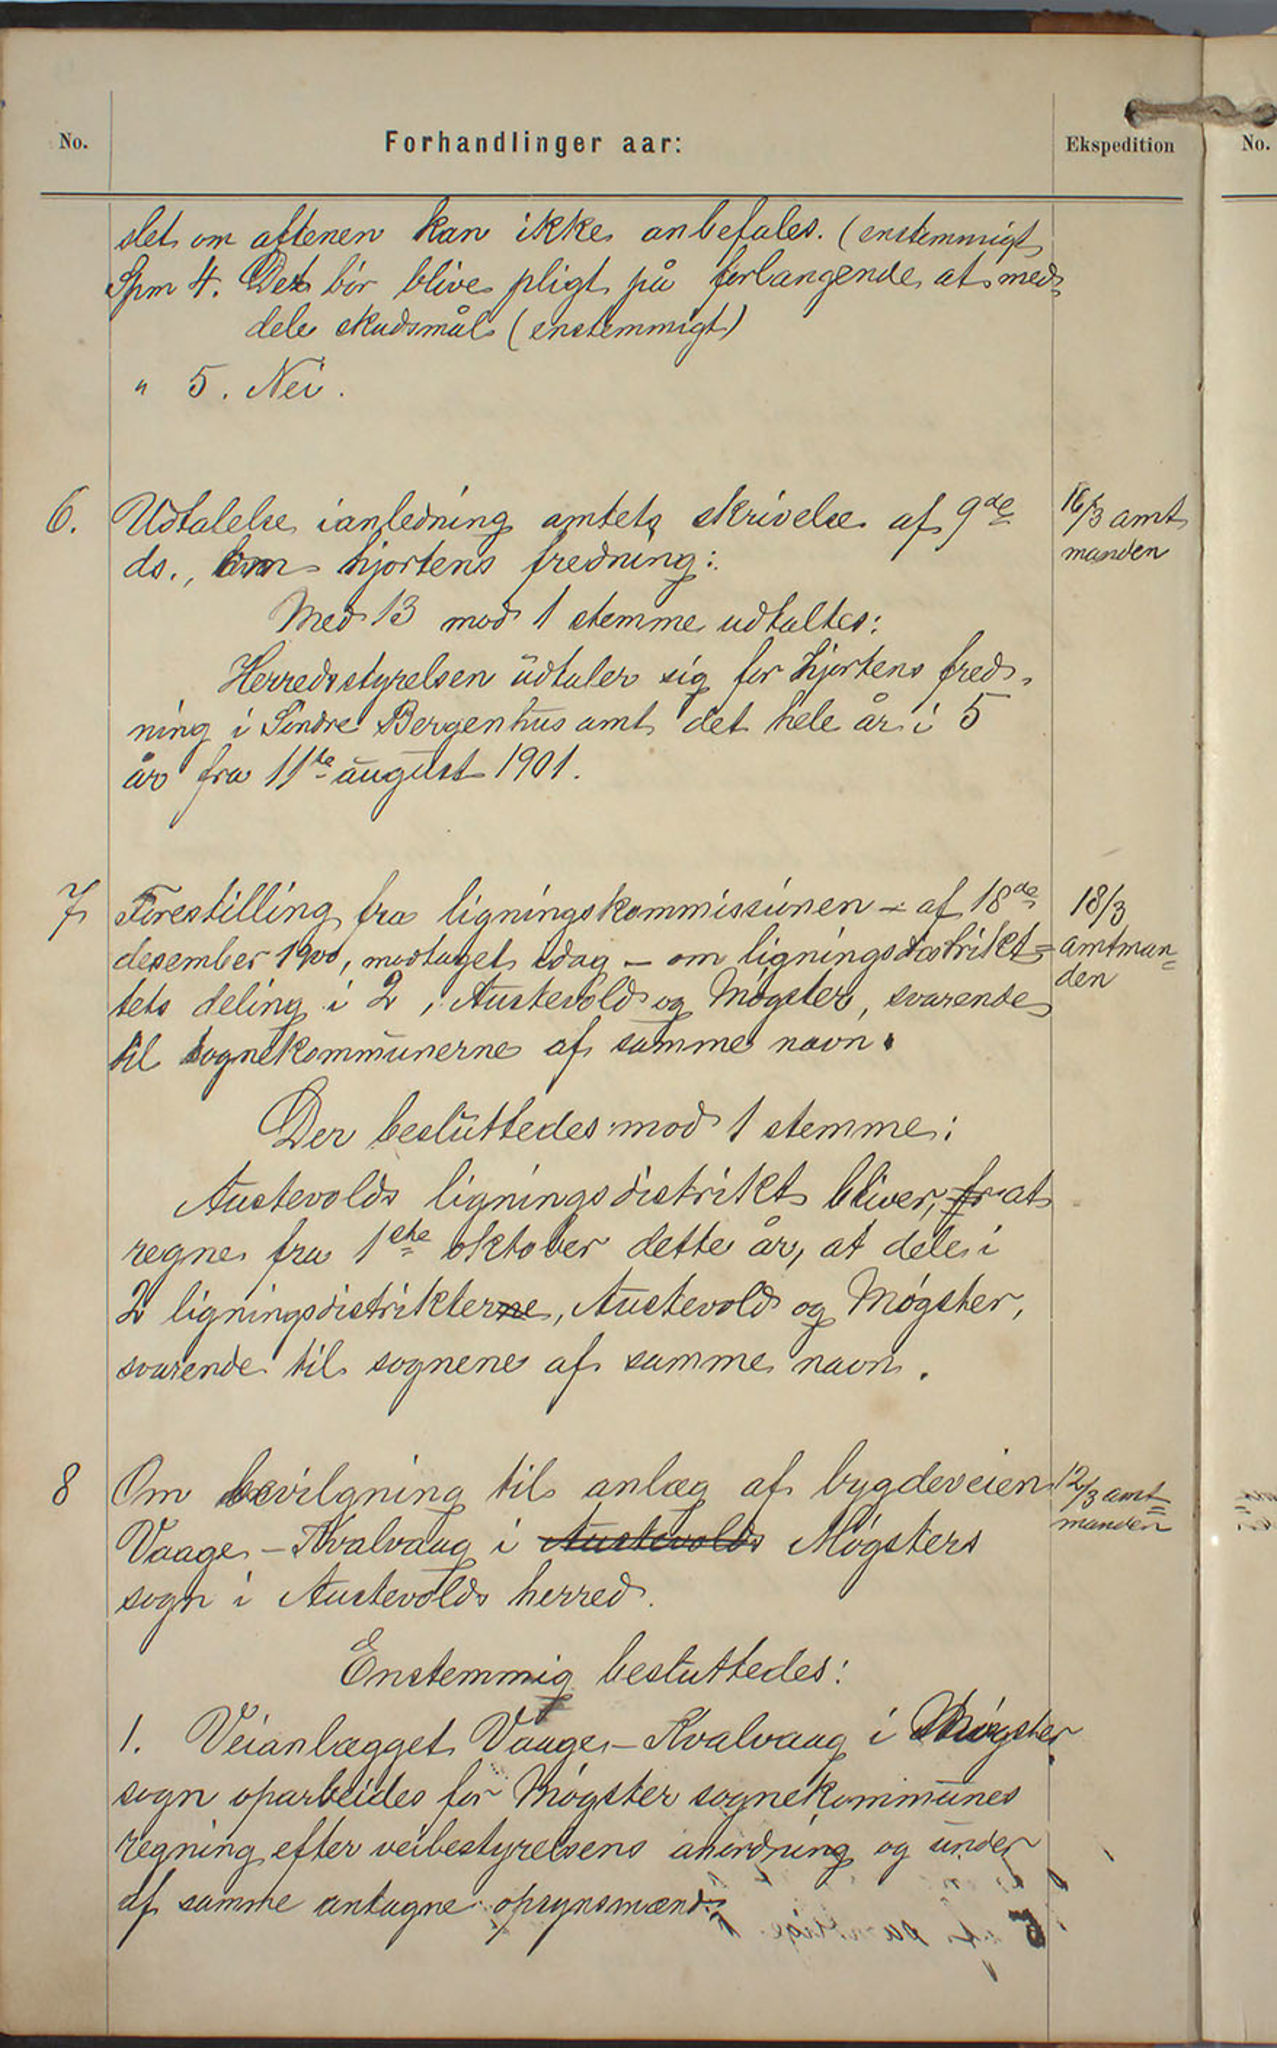 No.
Forhandlinger aar:
Ekspedition
No.
slet om aftenen kan ikke anbefales. (enstemmigt
Spm 4. Det bör blive pligt på forlangende at med-
dele skudsmål (enstemmigt)
" 5. Nei.
6. Udtalelse ianledning amtets skrivelse af 9de
ds., om hjortens fredning:
16/3 amt
manden
Med 13 mod 1 stemme udtaltes:
Herredsstyrelsen udtaler sig for hjortens fred-
ning i Söndre Bergenhus amt det hele år i 5
år fra 11te august 1901.
7 Forestilling fra ligningskommissionen - af 18de
desember 1900, modtaget idag - om ligningsdistrikt=
tets deling i 2, Austevold og Møgster, svarende
til sognekommunerne af samme navn.
18/3
amtman=
den
Der besluttedes mod 1 stemme:
Austevolds ligningsdistrikt bliver, fr at
regne fra 1ste oktober dette år, at dele i
2 ligningsdistrikterne, Austevold og Møgster,
svarende til sognene af samme navn.
8 Om bevilgning til anlæg af bygdeveien
Vaage - Kvalvaag i Austevolds Møgsters
sogn i Austevolds herred.
12/3 amt=
manden
Enstemmig besluttedes:
1. Veianlægget Vaage - Kvalvaag i Møgster
sogn oparbeides for Møgster sognekommunes
regning efter veibestyrelsens anordning og under
af samme antagne opsynsmænd.